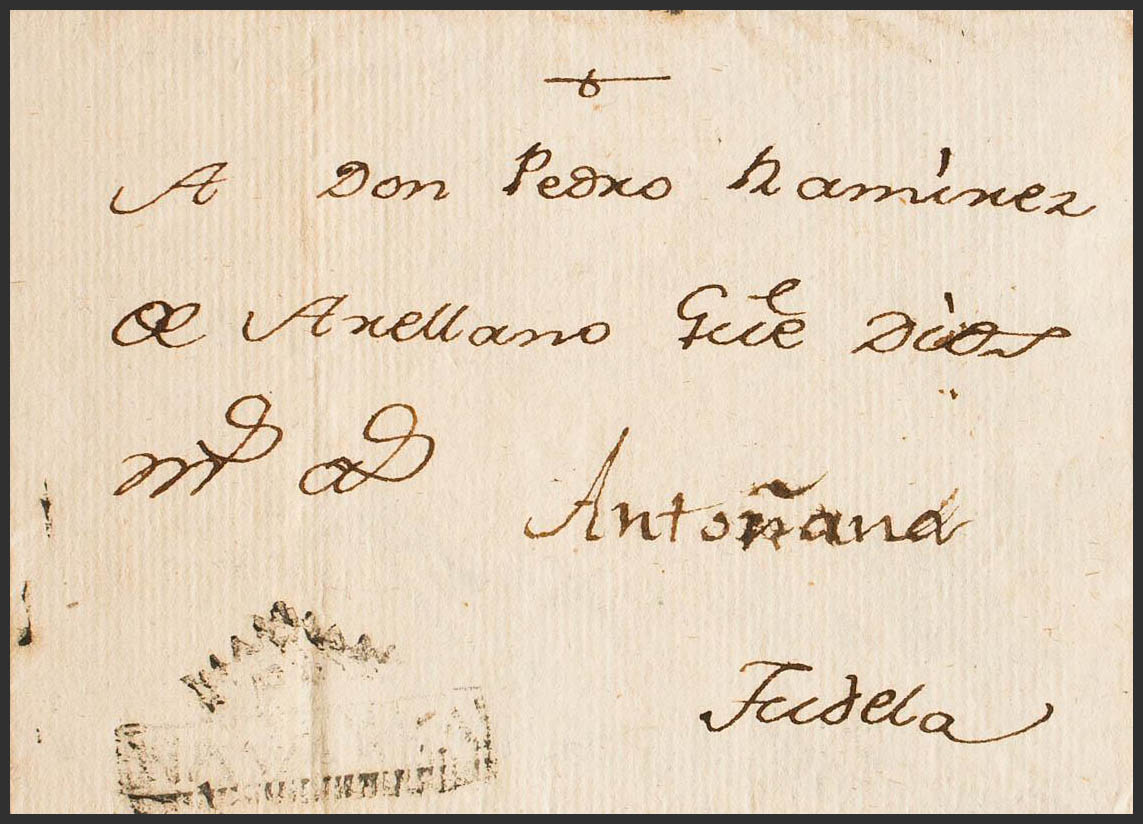 A Don Pedro Ramírez
de Arellano Gue Dios
ms as
Antoñana
Tudela
NAVARRA